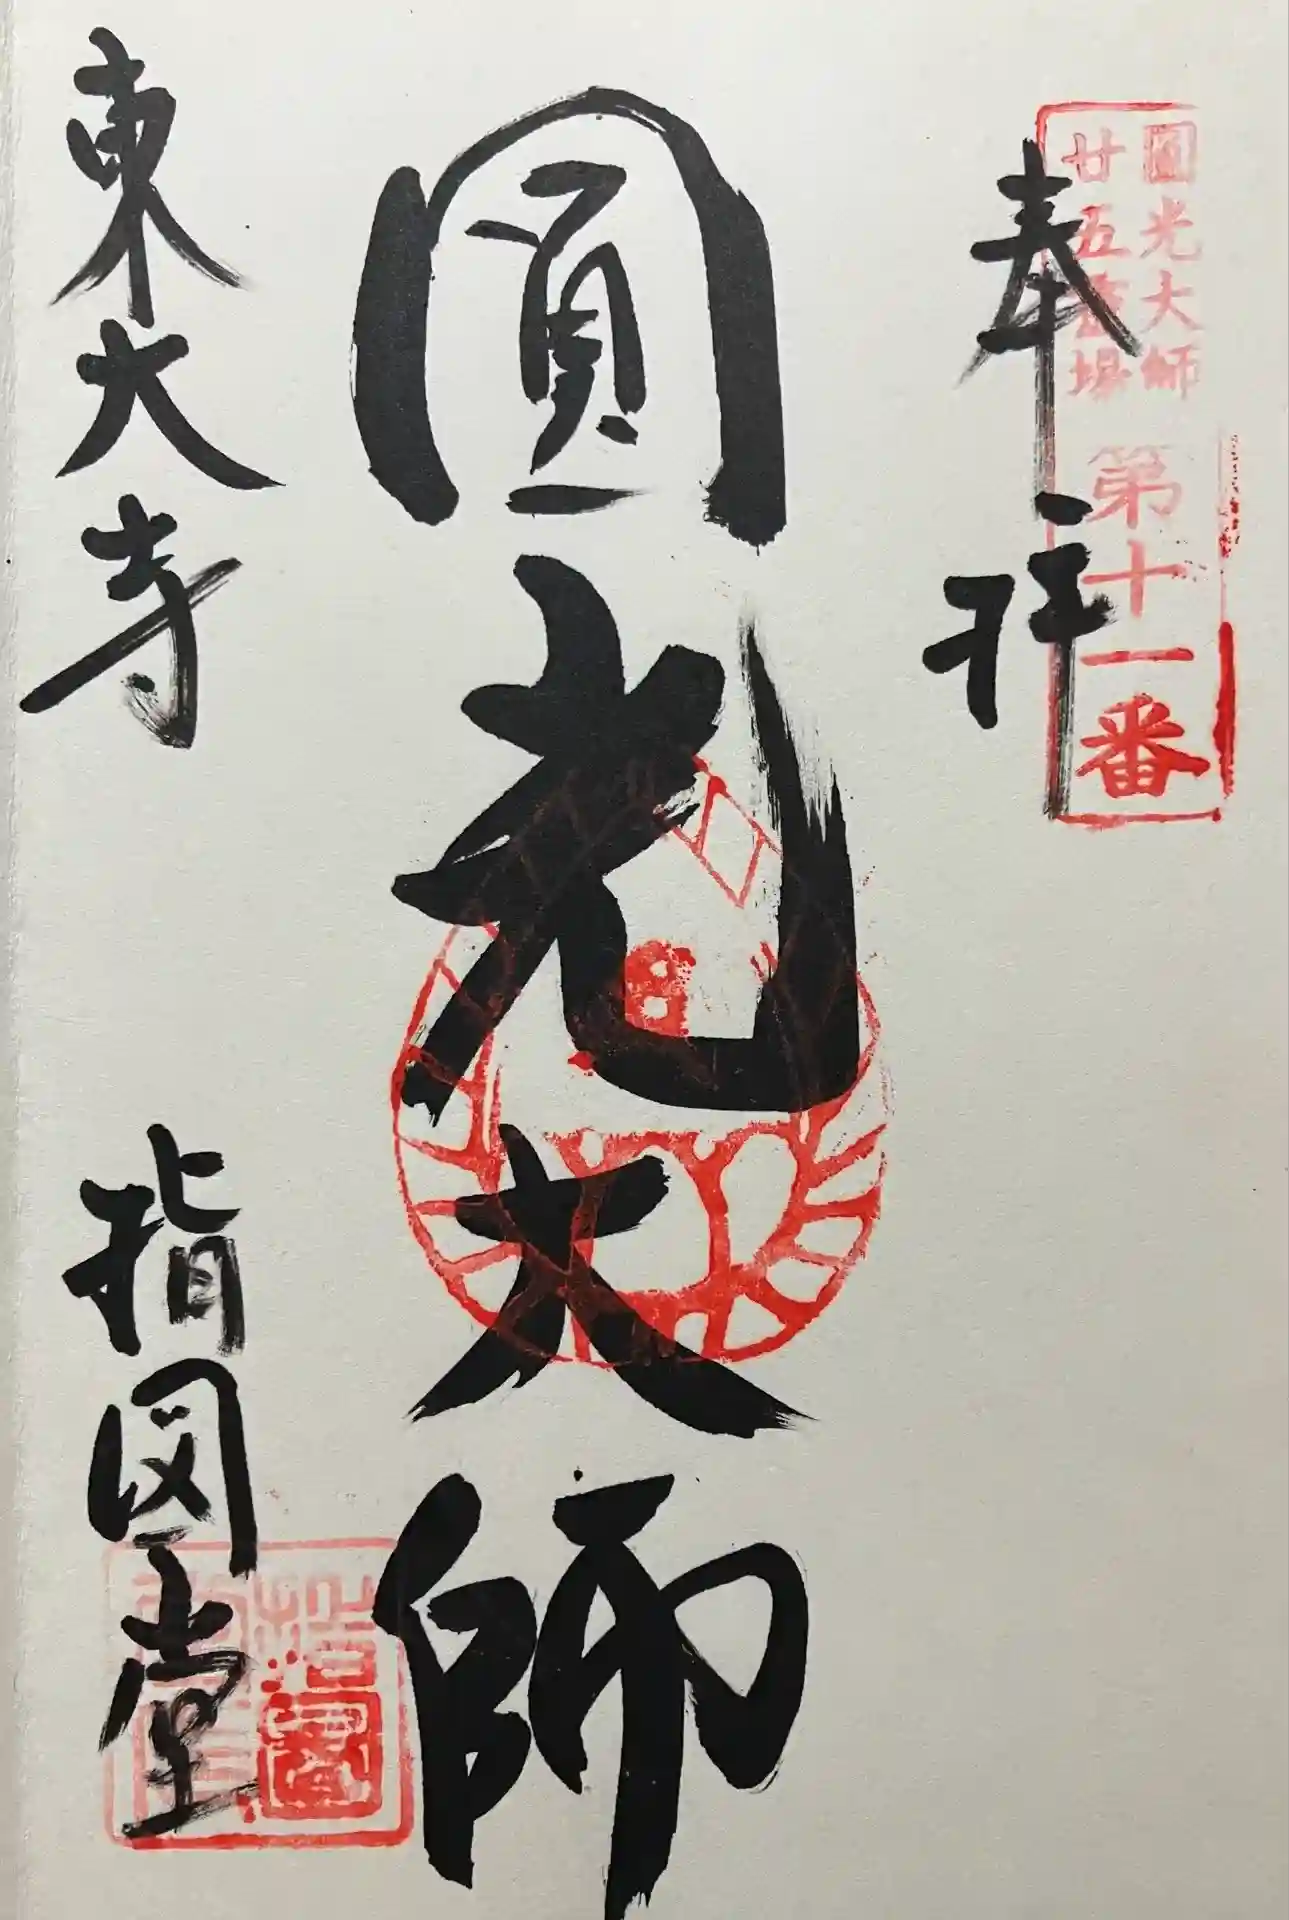 圓光大師
廿五霊場
第十一番
奉拝
圓光大師
東大寺
指図堂